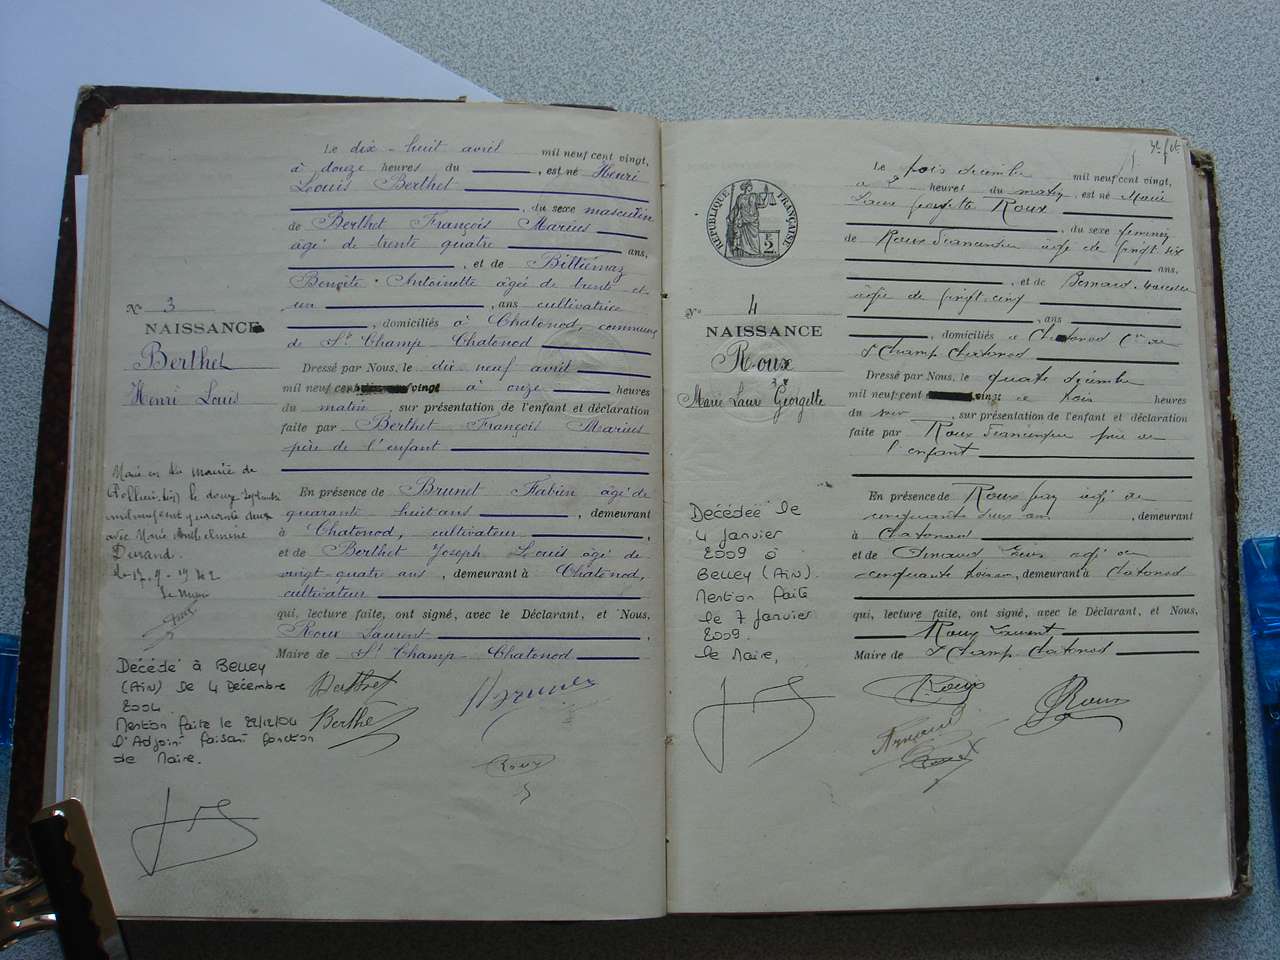 Le dix-huit avril mil neuf cent vingt,
à douze heures du , est né Henri
Louis Berthet
, du sexe masculin
de Berthet François Marius
âgé de trente quatre ans,
, et de
Benoite Antoinette âgée de trente et
un , ans cultivatrice
, domiciliés à Chatonod, commune
de St Champ-Chatonod
Dressé par Nous, le dix neuf avril
mil neuf cent vingt à onze heures
du matin, sur présentation de l'enfant et déclaration
faite par Berthet François Marius
père de l'enfant
En présence de Brunet Fabien âgé de
quarante huit ans , demeurant
à Chatonod, cultivateur
et de Berthet Joseph Louis âgé de
vingt-quatre ans, demeurant à Chatonod,
cultivateur
qui, lecture faite, ont signé, avec le Déclarant, et Nous,
Roux Laurent ,
Maire de St Champ-Chatonod
No 3
NAISSANCE
Berthet
Henri Louis
Marié en la mairie de
le douze Septembre
mil neuf cent quarante deux
avec Marie
Durand.
Le Maire
Décédé à Belley
(Ain) De 4 Décembre
2004.
Mention faite le 22/12/04
l'Adjoint faisant fonction
de Maire.
Berthet
Brunet
Roux
RÉPUBLIQUE FRANÇAISE
No 4
NAISSANCE
Roux
Marie Laure Georgette
Le trois décembre mil neuf cent vingt,
à heures du matin, est né Marie
Laure Georgette Roux
, du sexe féminin
de Roux âgé de vingt six
ans,
, et de Bernard
âgée de vingt-cinq
, ans
, domiciliés à Chatonod Cne de
St Champ Chatonod
Dressé par Nous, le quatre décembre
mil neuf cent vingt à trois heures
du soir, sur présentation de l'enfant et déclaration
faite par Roux père de
l'enfant
En présence de Roux âgé de
cinquante deux ans , demeurant
à Chatonod
et de âgé de
cinquante , demeurant à Chatonod
qui, lecture faite, ont signé, avec le Déclarant, et Nous,
Roux Laurent
Maire de St Champ Chatonod
Décédée le
4 janvier
2009 à
Belley (Ain).
Mention faite
le 7 janvier
2009.
le Maire,
Roux
Roux
Roux